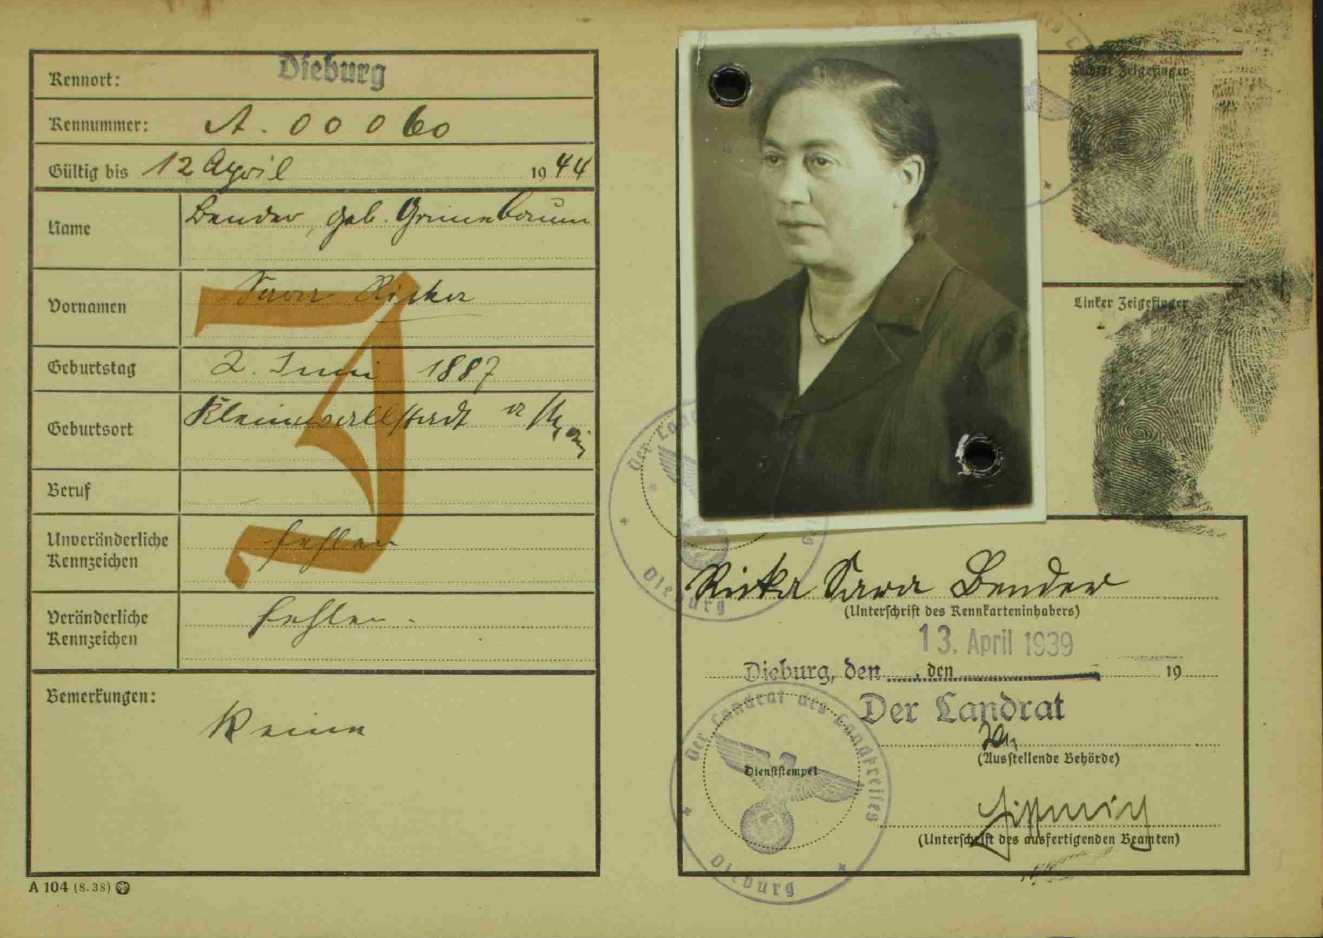 Kennort: Dieburg
Kennummer: A. 00060
Gültig bis 12 April 1944
Name Bender, geb. Grünebaum
Vornamen Sara Ricka
Geburtstag 2. Juni 1887
Geburtsort Kleinwallstadt a/Main
Beruf
Unveränderliche
Kennzeichen fehlen
Veränderliche
Kennzeichen fehlen.
Bemerkungen:
Keine
J
A 104 (8. 38)
Rechter Zeigefinger
Linker Zeigefinger
Der Land
Dieburg
Ricka Sara Bender
(Unterschrift des Kennkarteninhabers)
13. April 1939
Dieburg, den , den 19
Der Landrat
(Ausstellende Behörde)
Der Landrat des Landkreises
Dienststempel
Dieburg
(Unterschrift des ausfertigenden Beamten)